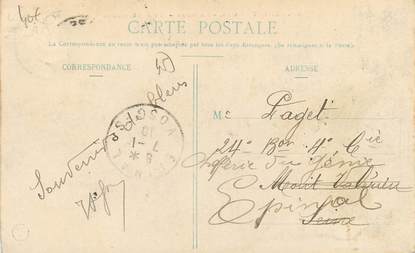 40e
CARTE POSTALE
La Correspondance au recto n'est pas acceptée par tous les Pays Étrangers. (Se renseigner à la Poste).
CORRESPONDANCE
ADRESSE
Souvenir
M Paget
24e Bon 4e Cie
du Génie
Mont Valérien
Epinal
Seine
VOSGES